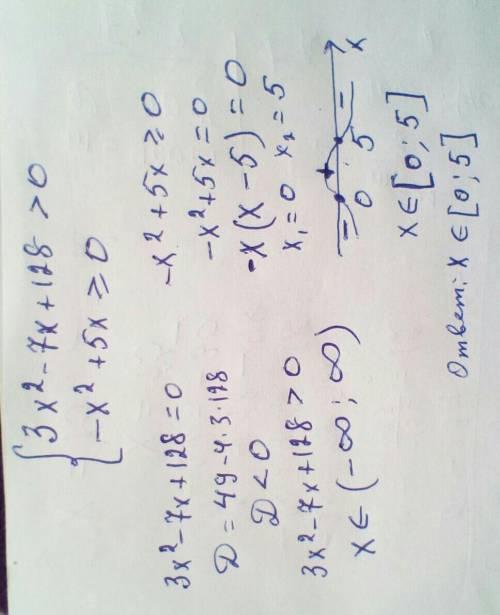 3x²-7x+128>0
-x²+5x≥0
3x²-7x+128=0
D=49-4·3·128
D<0
3x²-7x+128>0
x∈(-∞;∞)
-x²+5x≥0
-x²+5x=0
-x(x-5)=0
x₁=0 x₂=5
- + -
0 5 x
x∈[0;5]
Ответ: x∈[0;5]